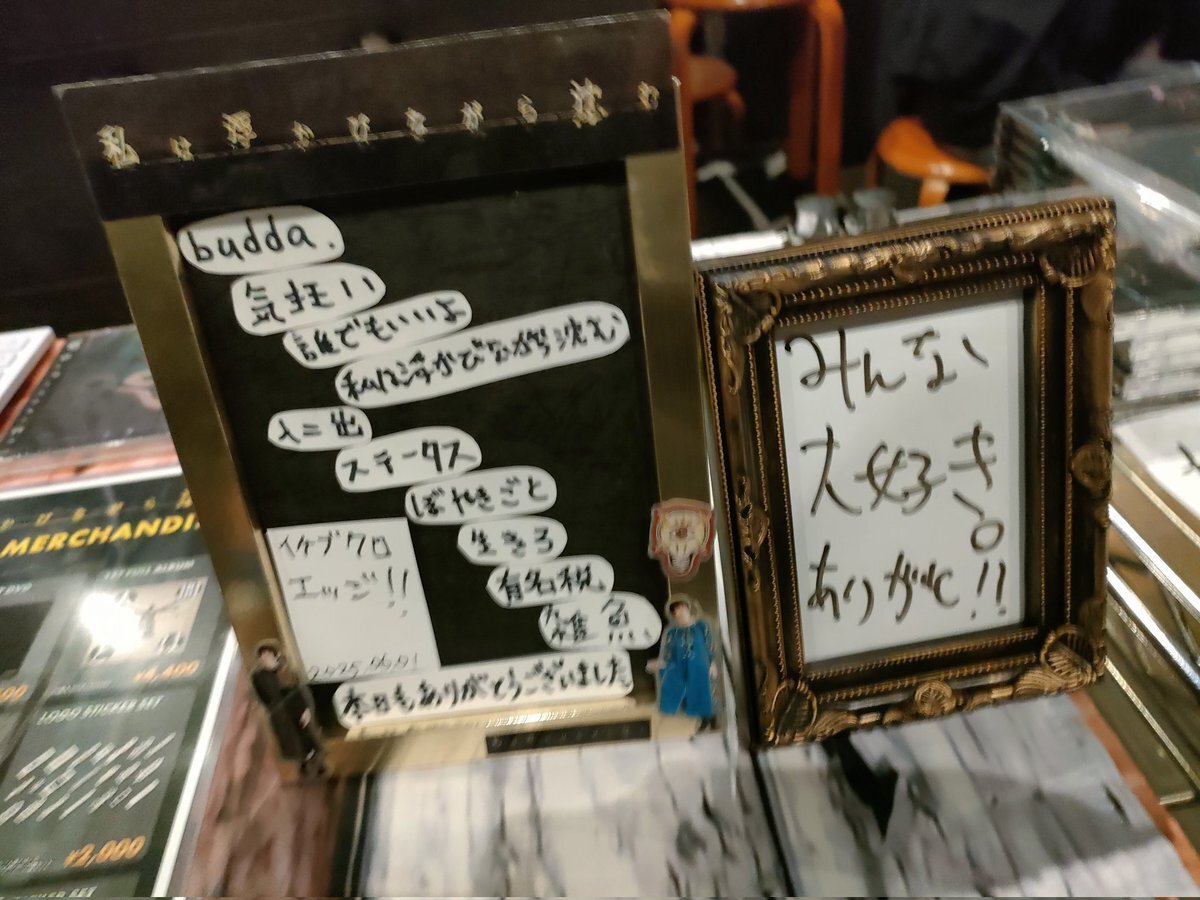 私は浮かびながら沈む
budda.
気狂い
誰でもいいよ
私は浮かびながら沈む
ステータス
ぼやきごと
生きろ
有名税
雑魚
イケブクロ
エッジ!!
2025.06.01
本日もありがとうございました
みんな
大好き。
ありがと!!
MERCHANDI
DVD
1ST FULL ALBUM
¥4,400
1999 STICKER SET
¥2,000
STICKER SET